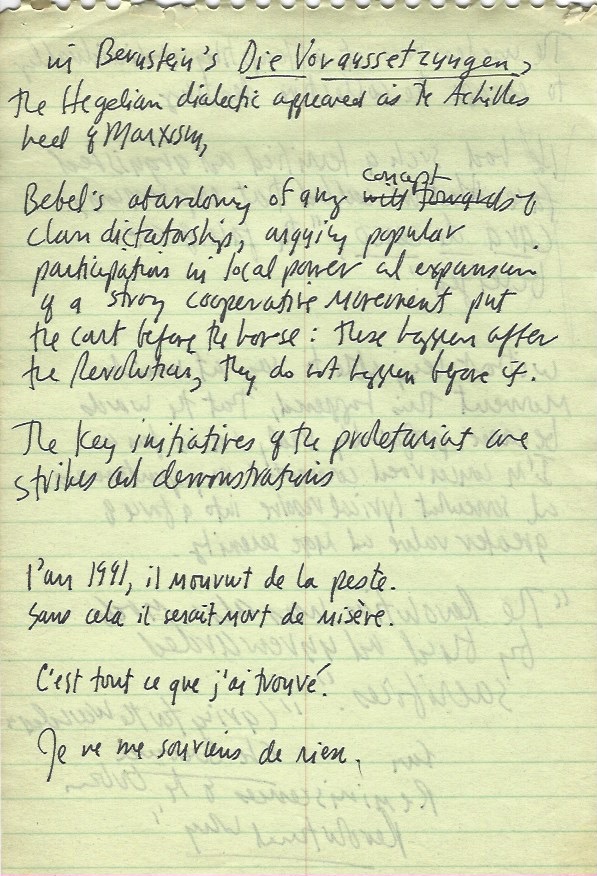 in Bernstein's Die Voraussetzungen,
the Hegelian dialectic appeared as the Achilles
heel of Marxism,
Bebel's abandoning of any concept
clan dictatorship, arguing popular
participation in local power and expansion
of a strong cooperative movement put
the cart before the horse: these happen after
the Revolution, they do not happen before it.
The key initiatives of the proletariat are
strikes and demonstrations
l'an 1991, il mourut de la peste.
Sans cela il serait mort de misère.
C'est tout ce que j'ai trouvé.
Je ne me souviens de rien.